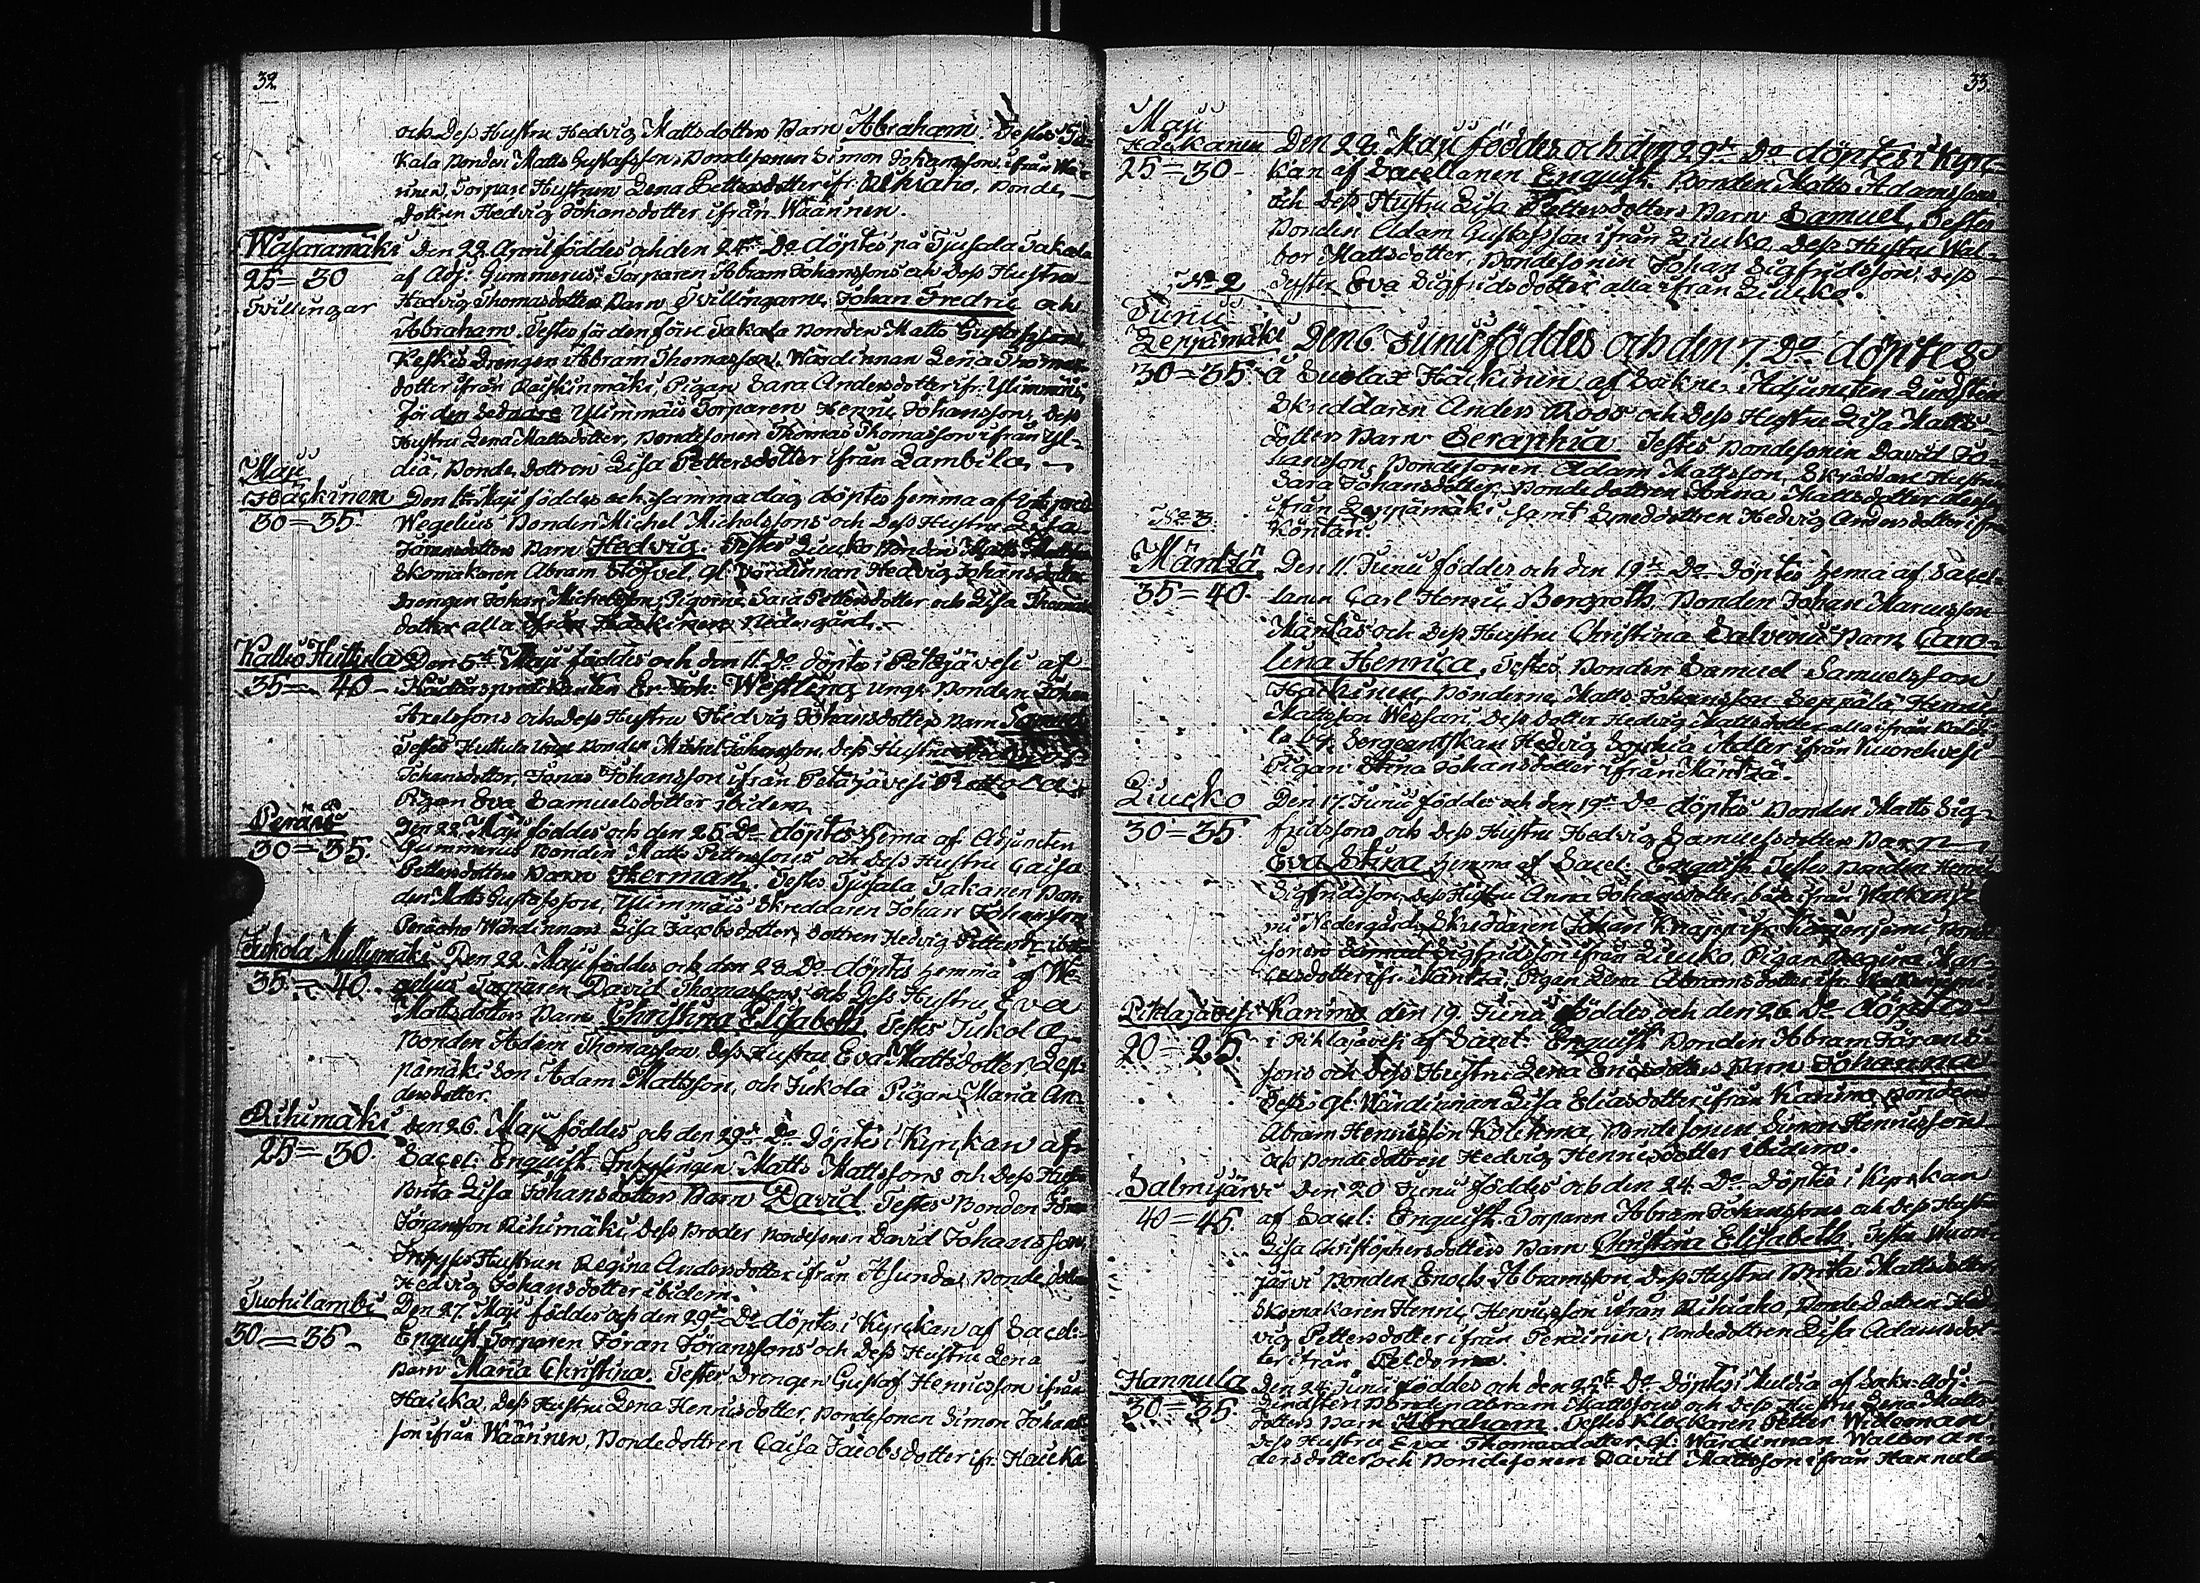 32
och Dess Hustru Hedvig Mattsdotters Barn Abraham. Testes
kala Bonden Matts Gustafsson, Bondesonen Simon Johansson, ifrån Wä-
nnen, Torpare Hustrun Lena Pettersdotter ifr. Bonde-
dottren Hedvig Johansdotter ifrån Wäännen.
Wasaramäki
25=30
Tvillingar
Den 22 April föddes och den 24de Do döptes på Tjusala Takala
af Adj. Gummerus Torparen Abram Johanssons och Dess Hustrus
Hedvig Thomasdotters Barn Tvillingarne, Johan Fredric och
Abraham. Testes för den förre Takala Bonden Matts Gustafsson,
Keskis Drengen Abram Thomasson, Wärdinnan Lena Thomas-
dotter ifrån Raiskinmäki, Pigan Sara Andersdotter ifr. Ylimmäis,
För den sednare Ylimmäis Torparen Henric Johansson, Dess
Hustru Lena Mattsdotter, Bondesonen Thomas Thomasson ifrån Yl-
diä, Bonde dottren Lisa Pettersdotter ifrån Lambila.
Maji
Häckinen
30=35.
Den Maji föddes och samma dag döptes hemma af
Wegelius Bonden Michel Michelssons och Dess Hustru Lisa
Göransdotters Barn Hedvig. Testes Liucko Bonden Matts
Skomakaren Abram Stofvel, gl. Wärdinnan Hedvig Johansdotter
Drengen Johan Michelsson, Pigorne Sara Pettersdotter och Lisa Thomas-
dotter alla ifrån Häckinens Nedergård.
Kallio Huttula
35=40
Den 5te Maji föddes och den 11. Do döptes i Petäjävesi af
Westling unge Bonden Johan
Axelssons och Dess Hustru Hedvig Johansdotters Barn Samuel
Testes Huttula Unge Bonden Michel Johansson, Dess Hustru
Johansdotter, Jonas Johansson ifrån Petäjävesi
Pigan Eva Samuelsdotter ibidem
Peräis
30=35.
Den 22 Maji föddes och den 26 Do döptes hema af Adjuncten
Gummerus Bonden Matts Pettersons och Dess Hustru Caisa
Pettersdotters Barn Herman. Testes Tjusala Takanen Bon-
den Matts Gustafsson, Ylimmäis Skreddaren Johan Johansson
Peräaho Wärdinnan Lisa Jacobsdotter, Dottren Hedvig
Jukola Myllymäki
35=40.
Den 22. Maji föddes och den 23. Do döptes hemma af We-
gelius Torparen David Thomassons och Dess Hustru Eva
Mattsdotters Barn Christina Elisabeth. Testes Jukola
Bonden Adam Thomasson, Dess Hustru Eva Mattsdotter, Lep-
pämäki Son Adam Mattsson, och Jukola Pigan Maria An-
dersdotter.
Rihimäki
25=30
Den 26. Maji föddes och den 29de Do döptes i Kyrckan af
Sacel: Enquist. Inhysingen Matts Mattssons och Dess Hustru
Brita Lisa Johansdotters Barn David. Testes Bonden Jöran
Göransson Rihimäki, Dess Broder Bondesonen David Johansson,
Inhyses Hustrun Regina Andersdotter ifrån Asunda, Bonde dottren
Hedvig Johansdotter ibidem.
Tuohilambi
30=35
Den 27. Maji föddes och den 29de Do döptes i Kyrckan af Sacel:
Enquist Torparen Jöran Göranssons och Dess Hustru Lena
Barn Maria Christina. Testes Drengen Gustaf Henricsson ifrån
Haucka, Dess Hustru Lena Henricsdotter, Bondesonen Simon Johans-
son ifrån Wäännen, Bondedottren Caisa Jacobsdotter ifr. Haucka
33
Maji
Häckänen
25=30
Den 28. Maji föddes och den 29de Do döptes i Kyrc-
kan af Sacellanen Enquist. Bonden Matts Adamssons
och Dess Hustru Lisa Pettersdotters Barn Samuel. Testes
Bonden Adam Gustafsson ifrån Liucko, Dess Hustru Wal-
bor Mattsdotter, Bondesonen Johan Sigfridsson, Dess
Syster Eva Sigfridsdotter alla ifrån Liucko.
No 2
Junii
Leppämäki
30=35
Den 6 Junii föddes och den 7. Do döptes
å Suolax Häckinen af Sockne Adjuncten Lindsten
Skreddaren Anders Roos och Dess Hustru Lisa Matts-
dotters Barn Seraphia Testes Bondesonen David Jo-
hansson, Bondesonen Adam Mattsson, Skräddare Hustrun
Sara Johansdotter, Bondedottren Johanna Mattsdotter
ifrån Leppämäki, samt Smeddottren Hedvig Andersdotter ifrån
Kontan.
No 3.
Mäntzä
35=40.
Den 11 Junii föddes och den 19de Do döptes hema af Sacel-
lann Carl Henric Bergroth, Bonden Johan Marcusson
Mäntzäs och Dess Hustru Christina Salvenii Barn Caro-
lina Henrica. Testes Bonden Samuel Samuelsson
Häckinen, Bönderne Matts Johansson Seppälä, Henric
Mattsson Wessari, Dess Dotter Hedvig Mattsdotter alla ifrån
Sergeantskan Hedvig Sophia Adler ifrån Vuorekvesi
Pigan Stina Johansdotter ifrån Mäntzä.
Liucko
30=35
Den 17. Junii föddes och den 19de Do döptes Bonden Matts Sig-
fridssons och Dess Hustru Hedvig Samuelsdotters Barn
Eva Stina hemma af Sacel: Enquist. Testes Bonden Henric
Sigfridsson, Dess Hustru Anna Johansdotter, båda ifrån
Nedergård, Skreddaren Johan Knapp ifr. Bonde
sonen Samuel Sigfridsson ifrån Liucko, Pigan Regina Mar-
cusdotter ifr. Mäntzä, Pigan Lena Abramsdotter ifr.
Pihlajavesi Karimo
20=25.
den 19. Junii föddes och den 26 Do döptes
i Pihlajavesi af Sacel: Enquist Bonden Abram Jörans-
sons och Dess Hustru Lena Ericsdotters Barn Johanna
Testes gl: Wärdinnan Lisa Eliasdotter ifrån Karimo, Bonden
Abram Henricsson Kolehma, Bondesonen Simon Henricsson
och Bondedottren Hedvig Henricsdotter ibidem.
Salmijärvi
40=45
Den 20 Junii föddes och den 24. Do döptes i Kyrckan
af Sacel: Enquist. Torparen Abram Johanssons och Dess Hustru
Lisa Christophersdotters Barn Christina Elisabeth. Testes
järvi Bonden Enoch Abramsson, Dess Hustru Brita Mattsdotter
Skomakaren Henric Henricsson ifrån Rihiaho, Bondedottren Hed-
vig Pettersdotter ifrån Peräinen, Bondedottren Lisa Adamsdot-
ter ifrån
Hannula
30=35
Den 24. Junii föddes och den 25te Do döptes i Muldia af Sockn: Adj:
Lindsten Bonden Abram Mattssons och Dess Hustru Lena Matts-
dotters Barn Abraham. Testes Klockaren Petter Wideman
Dess Hustru Eva Thomasdotter, gl: Wärdinnan Walbor An-
dersdotter och Bondesonen David Mattsson ifrån Hannula